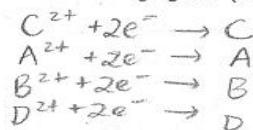 C²⁺ + 2e⁻ → C
A²⁺ + 2e⁻ → A
B²⁺ + 2e⁻ → B
D²⁺ + 2e⁻ → D